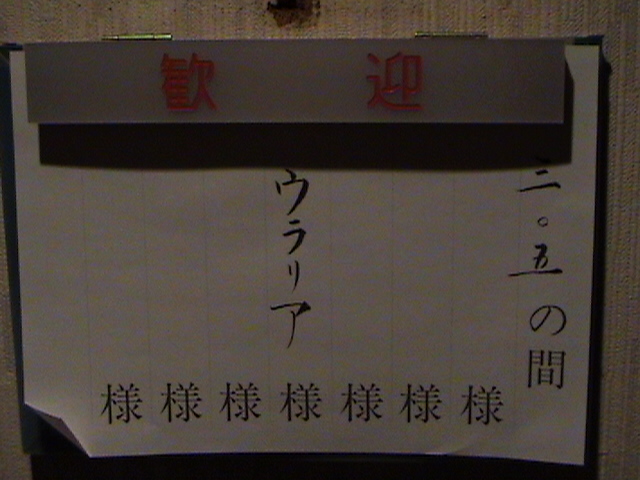 歓迎
三〇五の間
様
様
様
ウラリア様
様
様
様